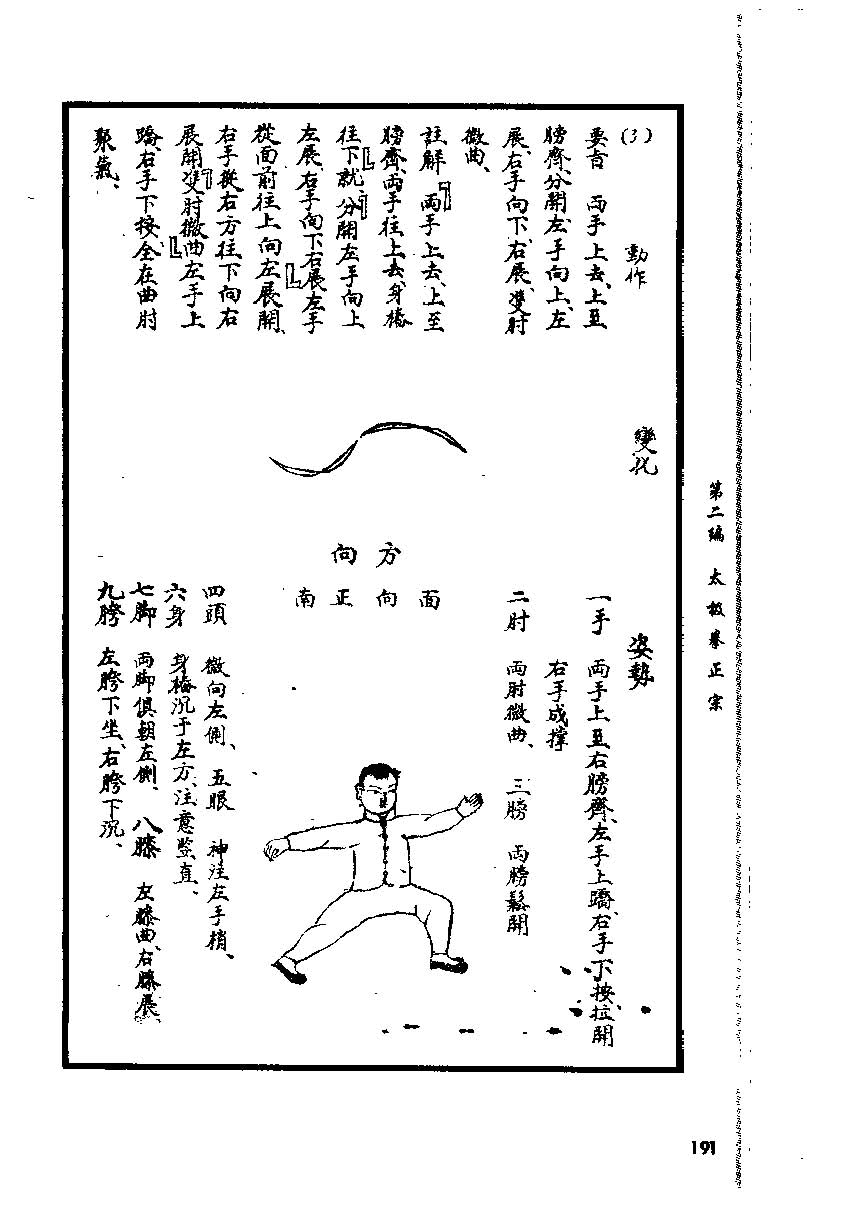 第二編　太极拳正宗
(3)　動作
要旨　両手上去、上至
膀齊、分開左手向上、左
展、右手向下、右展、雙肘
微曲、
註解　『両手上去、上至
膀齊、』両手往上去、身樁
往下就、『分開左手向上
左展、右手向下右展、』左手
從面前往上、向左展開、
右手從右方往下向右
展開、『雙肘微曲』左手上
蹻、右手下按、全在曲肘
聚氣、
變化
方向
面向正南
姿勢
一手　両手上至右膀齊、左手上蹻、右手下按、拉開
右手成撑
二肘　両肘微曲、　三膀　両膀鬆開
四頭　微向左側、　五眼　神注左手梢、
六身　身樁沉于左方、注意竖直、
七脚　両脚俱朝左側、　八膝　左膝曲、右膝展、
九胯　左胯下坐、右胯下沉、
191